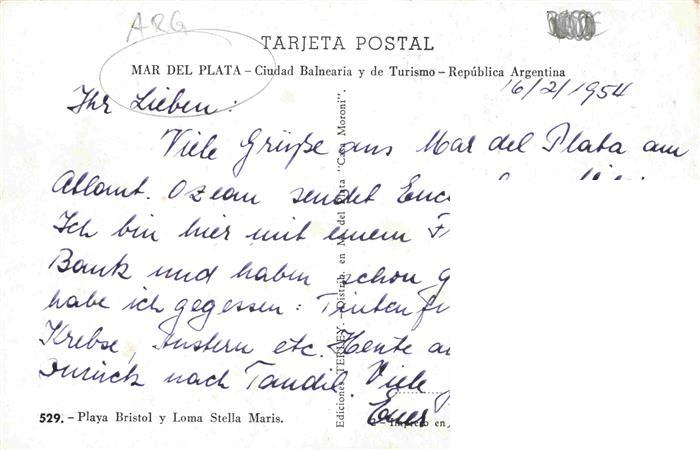 ARG
TARJETA POSTAL
MAR DEL PLATA – Ciudad Balnearia y de Turismo – República Argentina
16/2/1954
Ihr Lieben:
Viele Grüße aus Mar del Plata am
Atlant. Ozean sendet
Ich bin hier mit einem
Bank und haben schon
habe ich gegessen:
Krebse, Austern etc. Heute
zurück nach Tandil. Viele
Euer
529. – Playa Bristol y Loma Stella Maris.
Ediciones TERLEY. Distrib. en M. del Plata "Casa Moroni".
Impreso en